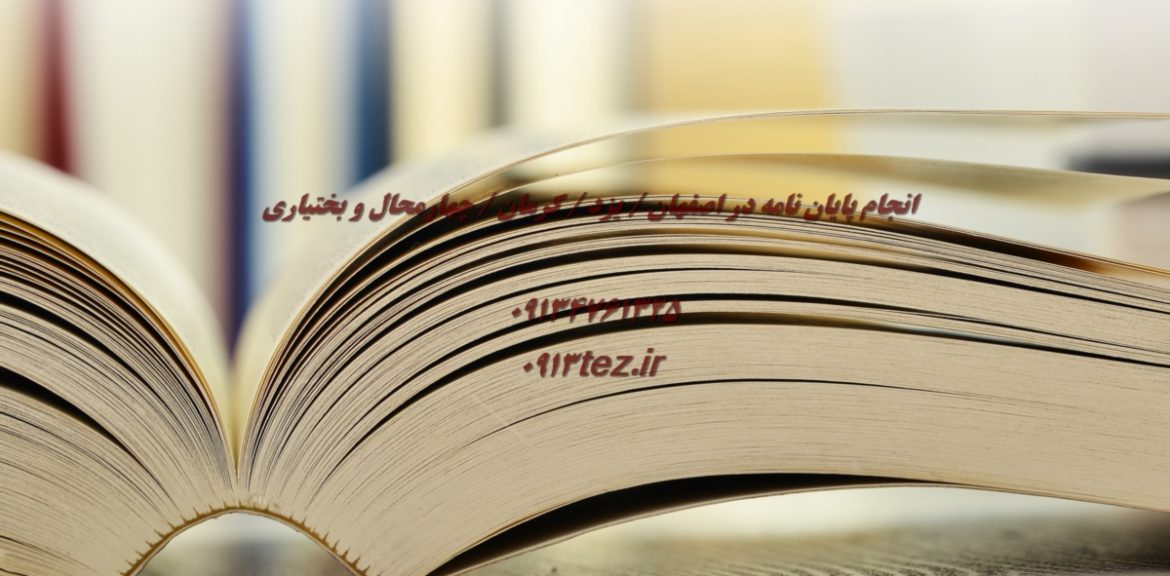 انجام پایان نامه در اصفهان / یزد / کرمان / چهارمحال و بختیاری
۰۹۱۳۴۷۶۱۳۲۵
۰۹۱۳tez.ir